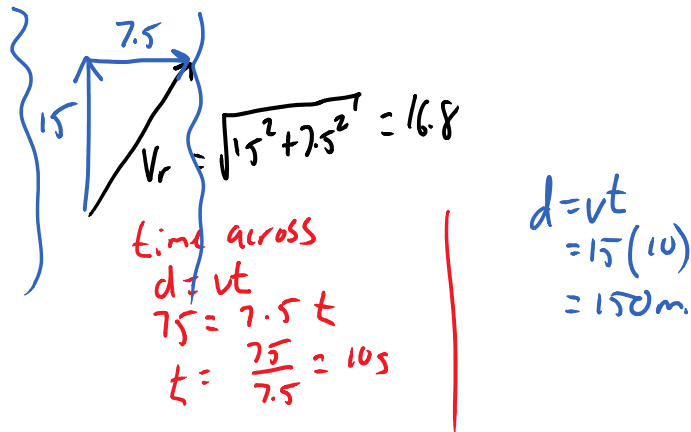 7.5
15
Vr = √15²+7.5² = 16.8
time across
d = vt
75 = 7.5 t
t = 75/7.5 = 10s
d = vt
= 15(10)
= 150m.